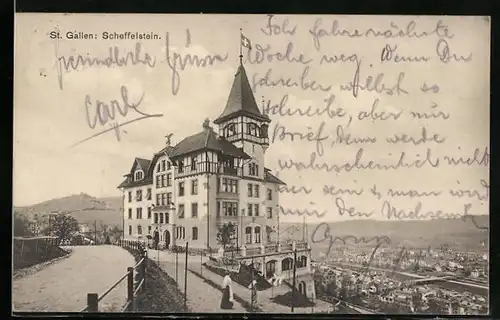 St. Gallen: Scheffelstein.
Ich fahre nächste
Woche weg. Wenn Du
schreiben willst so
schreibe, aber nur
Brief, denn werde
wahrscheinlich nicht
hier sein & man wird
mir den Nachsenden
freundliche Grüsse
Carl